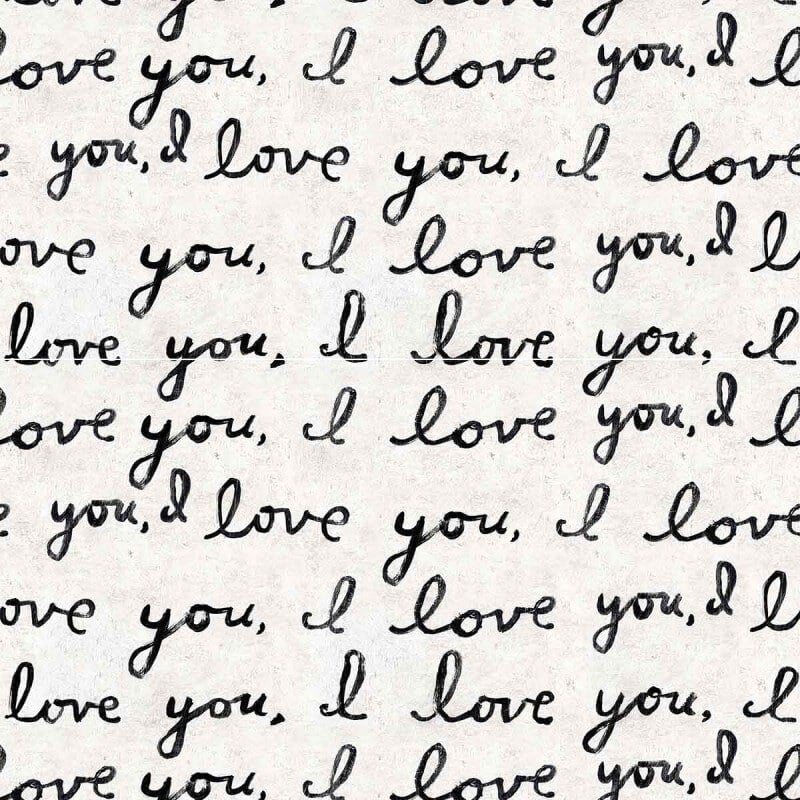 love you, I love you, I
love you, I love you, I l
e you, I love you, I love
ove you, I love you, I l
love you, I love you, I
love you, I love you, I l
e you, I love you, I love
ove you, I love you, I l
love you, I love you, I
love you, I love you, I l